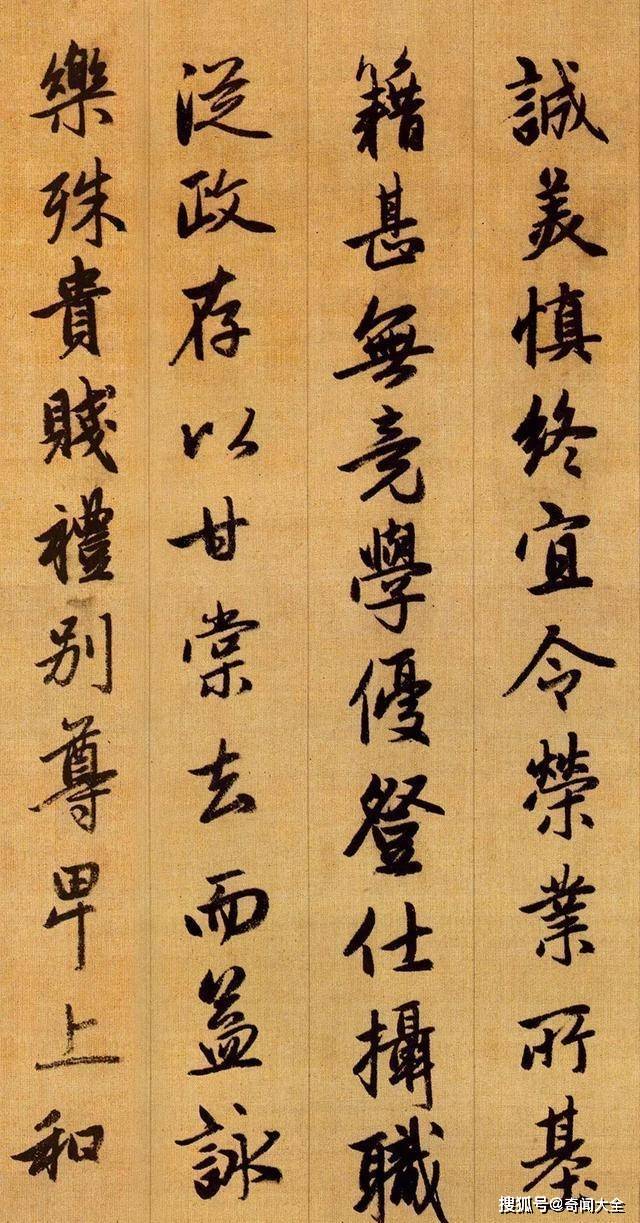 誠美慎終宜令榮業所基
籍甚無竟學優登仕攝職
從政存以甘棠去而益詠
樂殊貴賤禮別尊卑上和
搜狐号@奇闻大全